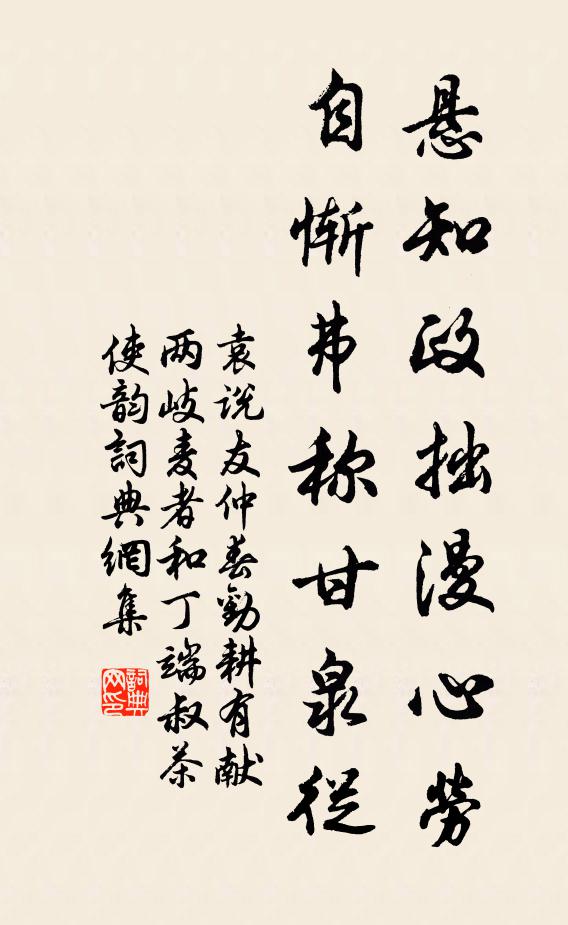 悬知政拙漫心劳
自惭弗称甘泉从
袁说友仲春劝耕有献
两岐麦者和丁端叔茶
使韵詞典網集
詞典网印